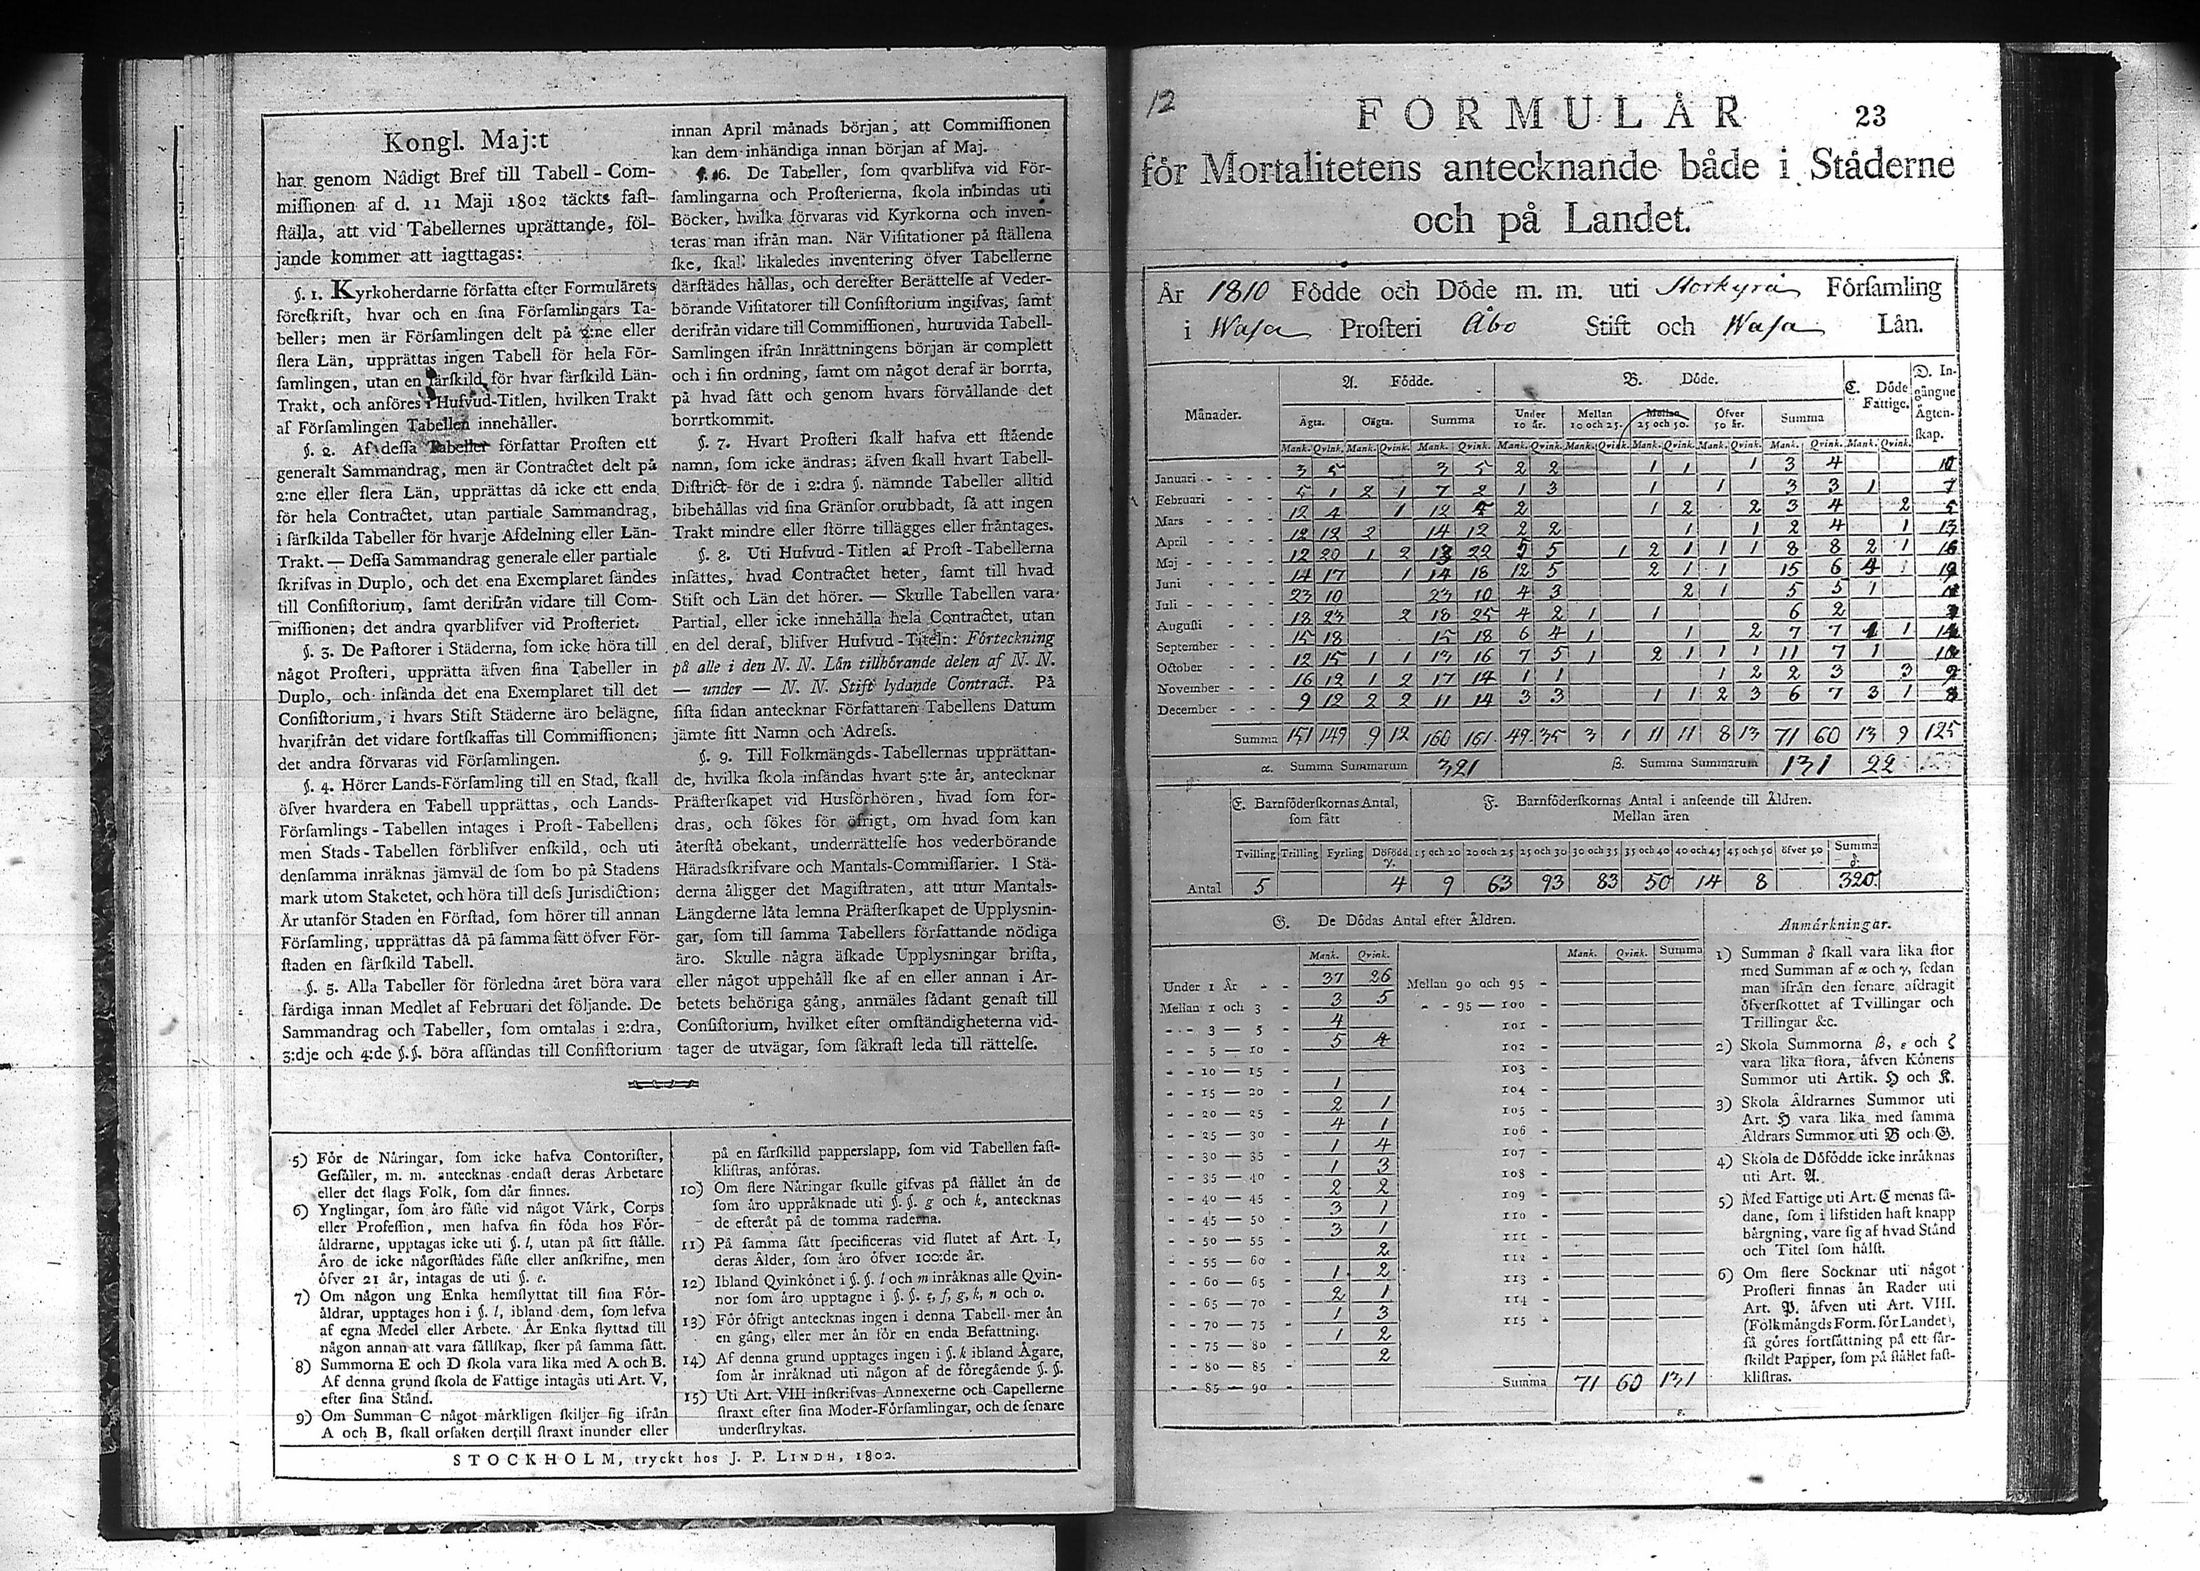 Kongl. Maj:t
har genom Nådigt Bref till Tabell-Com-
missionen af d. 11 Maji 1802 täckts fast-
ställa, att vid Tabellernes uprättande, föl-
jande kommer att iagttagas:
§. 1. Kyrkoherdarne författa efter Formulärets
föreskrift, hvar och en sina Församlingars Ta-
beller; men är Församlingen delt på 2:ne eller
flera Län, upprättas ingen Tabell för hela För-
samlingen, utan en särskild för hvar särskild Län-
Trakt, och anföres i Hufvud-Titlen, hvilken Trakt
af Församlingen Tabellen innehåller.
§. 2. Af dessa Tabeller författar Prosten ett
generalt Sammandrag, men är Contractet delt på
2:ne eller flera Län, upprättas då icke ett enda
för hela Contractet, utan partiale Sammandrag,
i särskilda Tabeller för hvarje Afdelning eller Län-
Trakt. — Dessa Sammandrag generale eller partiale
skrifvas in Duplo, och det ena Exemplaret sändes
till Consistorium, samt derifrån vidare till Com-
missionen; det andra qvarblifver vid Prosteriet.
§. 3. De Pastorer i Städerna, som icke höra till
något Prosteri, upprätta äfven sina Tabeller in
Duplo, och insända det ena Exemplaret till det
Consistorium, i hvars Stift Städerne äro belägne,
hvarifrån det vidare fortskaffas till Commissionen;
det andra förvaras vid Församlingen.
§. 4. Hörer Lands-Församling till en Stad, skall
öfver hvardera en Tabell upprättas, och Lands-
Församlings-Tabellen intages i Prost-Tabellen;
men Stads-Tabellen förblifver enskild, och uti
densamma inräknas jämväl de som bo på Stadens
mark utom Staketet, och höra till dess Jurisdiction;
Är utanför Staden en Förstad, som hörer till annan
Församling, upprättas då på samma sätt öfver För-
staden en särskild Tabell.
§. 5. Alla Tabeller för förledna året böra vara
färdiga innan Medlet af Februari det följande. De
Sammandrag och Tabeller, som omtalas i 2:dra,
3:dje och 4:de §.§. böra afsändas till Consistorium
innan April månads början, att Commissionen
kan dem inhändiga innan början af Maj.
§. 6. De Tabeller, som qvarblifva vid För-
samlingarna och Prosterierna, skola inbindas uti
Böcker, hvilka förvaras vid Kyrkorna och inven-
teras man ifrån man. När Visitationer på ställena
ske, skall likaledes inventering öfver Tabellerne
därstädes hållas, och derefter Berättelse af Veder-
börande Visitatorer till Consistorium ingifvas, samt
derifrån vidare till Commissionen, huruvida Tabell-
Samlingen ifrån Inrättningens början är complett
och i sin ordning, samt om något deraf är borrta,
på hvad sätt och genom hvars förvållande det
borrtkommit.
§. 7. Hvart Prosteri skall hafva ett stående
namn, som icke ändras; äfven skall hvart Tabell-
District för de i 2:dra §. nämnde Tabeller alltid
bibehållas vid sina Gränsor orubbadt, så att ingen
Trakt mindre eller större tillägges eller fråntages.
§. 8. Uti Hufvud-Titlen af Prost-Tabellerna
insättes, hvad Contractet heter, samt till hvad
Stift och Län det hörer. — Skulle Tabellen vara
Partial, eller icke innehålla hela Contractet, utan
en del deraf, blifver Hufvud-Titeln: Förteckning
på alle i den N. N. Län tillhörande delen af N. N.
— under — N. N. Stift lydande Contract. På
sista sidan antecknar Författaren Tabellens Datum
jämte sitt Namn och Adress.
§. 9. Till Folkmängds-Tabellernas upprättan-
de, hvilka skola insändas hvart 5:te år, antecknar
Prästerskapet vid Husförhören, hvad som for-
dras, och sökes för öfrigt, om hvad som kan
återstå obekant, underrättelse hos vederbörande
Häradsskrifvare och Mantals-Commissarier. I Stä-
derna åligger det Magistraten, att utur Mantals-
Längderne låta lemna Prästerskapet de Upplysnin-
gar, som till samma Tabellers författande nödiga
äro. Skulle några äskade Upplysningar brista,
eller något uppehåll ske af en eller annan i Ar-
betets behöriga gång, anmäles sådant genast till
Consistorium, hvilket efter omständigheterna vid-
tager de utvägar, som säkrast leda till rättelse.
5) För de Näringar, som icke hafva Contorister,
Gesäller, m. m. antecknas endast deras Arbetare
eller det slags Folk, som där finnes.
6) Ynglingar, som äro fäste vid något Värk, Corps
eller Profession, men hafva sin föda hos För-
äldrarne, upptagas icke uti §. l, utan på sitt ställe.
Äro de icke någorstädes fäste eller anskrifne, men
öfver 21 år, intagas de uti §. e.
7) Om någon ung Enka hemflyttat till sina För-
äldrar, upptages hon i §. l, ibland dem, som lefva
af egna Medel eller Arbete. Är Enka flyttad till
någon annan att vara sällskap, sker på samma sätt.
8) Summorna E och D skola vara lika med A och B.
Af denna grund skola de Fattige intagas uti Art. V,
efter sina Stånd.
9) Om Summan C något märkligen skiljer sig ifrån
A och B, skall orsaken dertill straxt inunder eller
på en särskilld papperslapp, som vid Tabellen fast-
klistras, anföras.
10) Om flere Näringar skulle gifvas på stället än de
som äro uppräknade uti §. §. g och k, antecknas
de efteråt på de tomma raderna.
11) På samma sätt specificeras vid slutet af Art. I,
deras Ålder, som äro öfver 100:de år.
12) Ibland Qvinkönet i §. §. l och m inräknas alle Qvin-
nor som äro upptagne i §. §. e, f, g, k, n och o.
13) För öfrigt antecknas ingen i denna Tabell mer än
en gång, eller mer än för en enda Befattning.
14) Af denna grund upptages ingen i §. k ibland Ägare,
som är inräknad uti någon af de föregående §. §.
15) Uti Art. VIII inskrifvas Annexerne och Capellerne
straxt efter sina Moder-Församlingar, och de senare
understrykas.
STOCKHOLM, tryckt hos J. P. LINDH, 1802.
12
FORMULÅR 23
för Mortalitetens antecknande både i Städerne
och på Landet.
År 1810 Födde och Döde m. m. uti Storkyro Församling
i Wasa Prosteri Åbo Stift och Wasa Län.
Månader. A. Födde. B. Döde. C. Döde Fattige. D. Ingångne Ägtenskap.
Ägta. Oägta. Summa Under 10 år. Mellan 10 och 25. Mellan 25 och 50. Öfver 50 år. Summa
Mank. Qvink. Mank. Qvink. Mank. Qvink. Mank. Qvink. Mank. Qvink. Mank. Qvink. Mank. Qvink. Mank. Qvink. Mank. Qvink.
Januari 3 5 3 5 2 2 1 1 1 3 4 10
Februari 5 1 2 1 7 2 1 3 1 1 3 3 1 7
Mars 12 4 1 12 5 2 1 2 2 3 4 2 5
April 12 12 2 14 12 2 2 1 1 2 4 1 13
Maj 12 20 1 2 13 22 5 5 1 2 1 1 1 8 8 2 1 16
Juni 14 17 1 14 18 12 5 2 1 1 15 6 4 1 19
Juli 23 10 23 10 4 3 2 1 5 5 1
Augusti 18 23 2 18 25 4 2 1 1 6 2
September 15 18 15 18 6 4 1 1 2 7 7 1 1
October 12 15 1 1 13 16 7 5 1 2 1 1 1 11 7 1
November 16 12 1 2 17 14 1 1 1 2 2 3 3 9
December 9 12 2 2 11 14 3 3 1 1 2 3 6 7 3 1 8
Summa 151 149 9 12 160 161 49 35 3 1 11 11 8 13 71 60 13 9 125
α. Summa Summarum 321 β. Summa Summarum 131 22
E. Barnföderskornas Antal, som fått F. Barnföderskornas Antal i anseende till Åldren.
Mellan åren
Tvilling Trilling Fyrling Döfödd γ. 15 och 20 20 och 25 25 och 30 30 och 35 35 och 40 40 och 45 45 och 50 öfver 50 Summa δ.
Antal 5 4 9 63 93 83 50 14 8 320
G. De Dödas Antal efter Åldren.
Mank. Qvink.
Under 1 År 37 26
Mellan 1 och 3 3 5
3 — 5 4
5 — 10 5 4
10 — 15
15 — 20 1
20 — 25 2 1
25 — 30 4 1
30 — 35 1 4
35 — 40 1 3
40 — 45 2 2
45 — 50 3 1
50 — 55 3 1
55 — 60 2
60 — 65 1 2
65 — 70 2 1
70 — 75 1 3
75 — 80 1 2
80 — 85 2
85 — 90
Mank. Qvink. Summa
Mellan 90 och 95
95 — 100
101
102
103
104
105
106
107
108
109
110
111
112
113
114
115
Summa 71 60 131
ε.
Anmärkningar.
1) Summan δ skall vara lika stor
med Summan af α och γ, sedan
man ifrån den senare afdragit
öfverskottet af Tvillingar och
Trillingar &c.
2) Skola Summorna β, ε och ζ
vara lika stora, äfven Könens
Summor uti Artik. H och K.
3) Skola Åldrarnes Summor uti
Art. H vara lika med samma
Åldrars Summor uti B och G.
4) Skola de Döfödde icke inräknas
uti Art. A.
5) Med Fattige uti Art. C menas så-
dane, som i lifstiden haft knapp
bärgning, vare sig af hvad Stånd
och Titel som hälst.
6) Om flere Socknar uti något
Prosteri finnas än Rader uti
Art. P. äfven uti Art. VIII.
(Folkmängds Form. för Landet),
så göres fortsättning på ett sär-
skildt Papper, som på stället fast-
klistras.